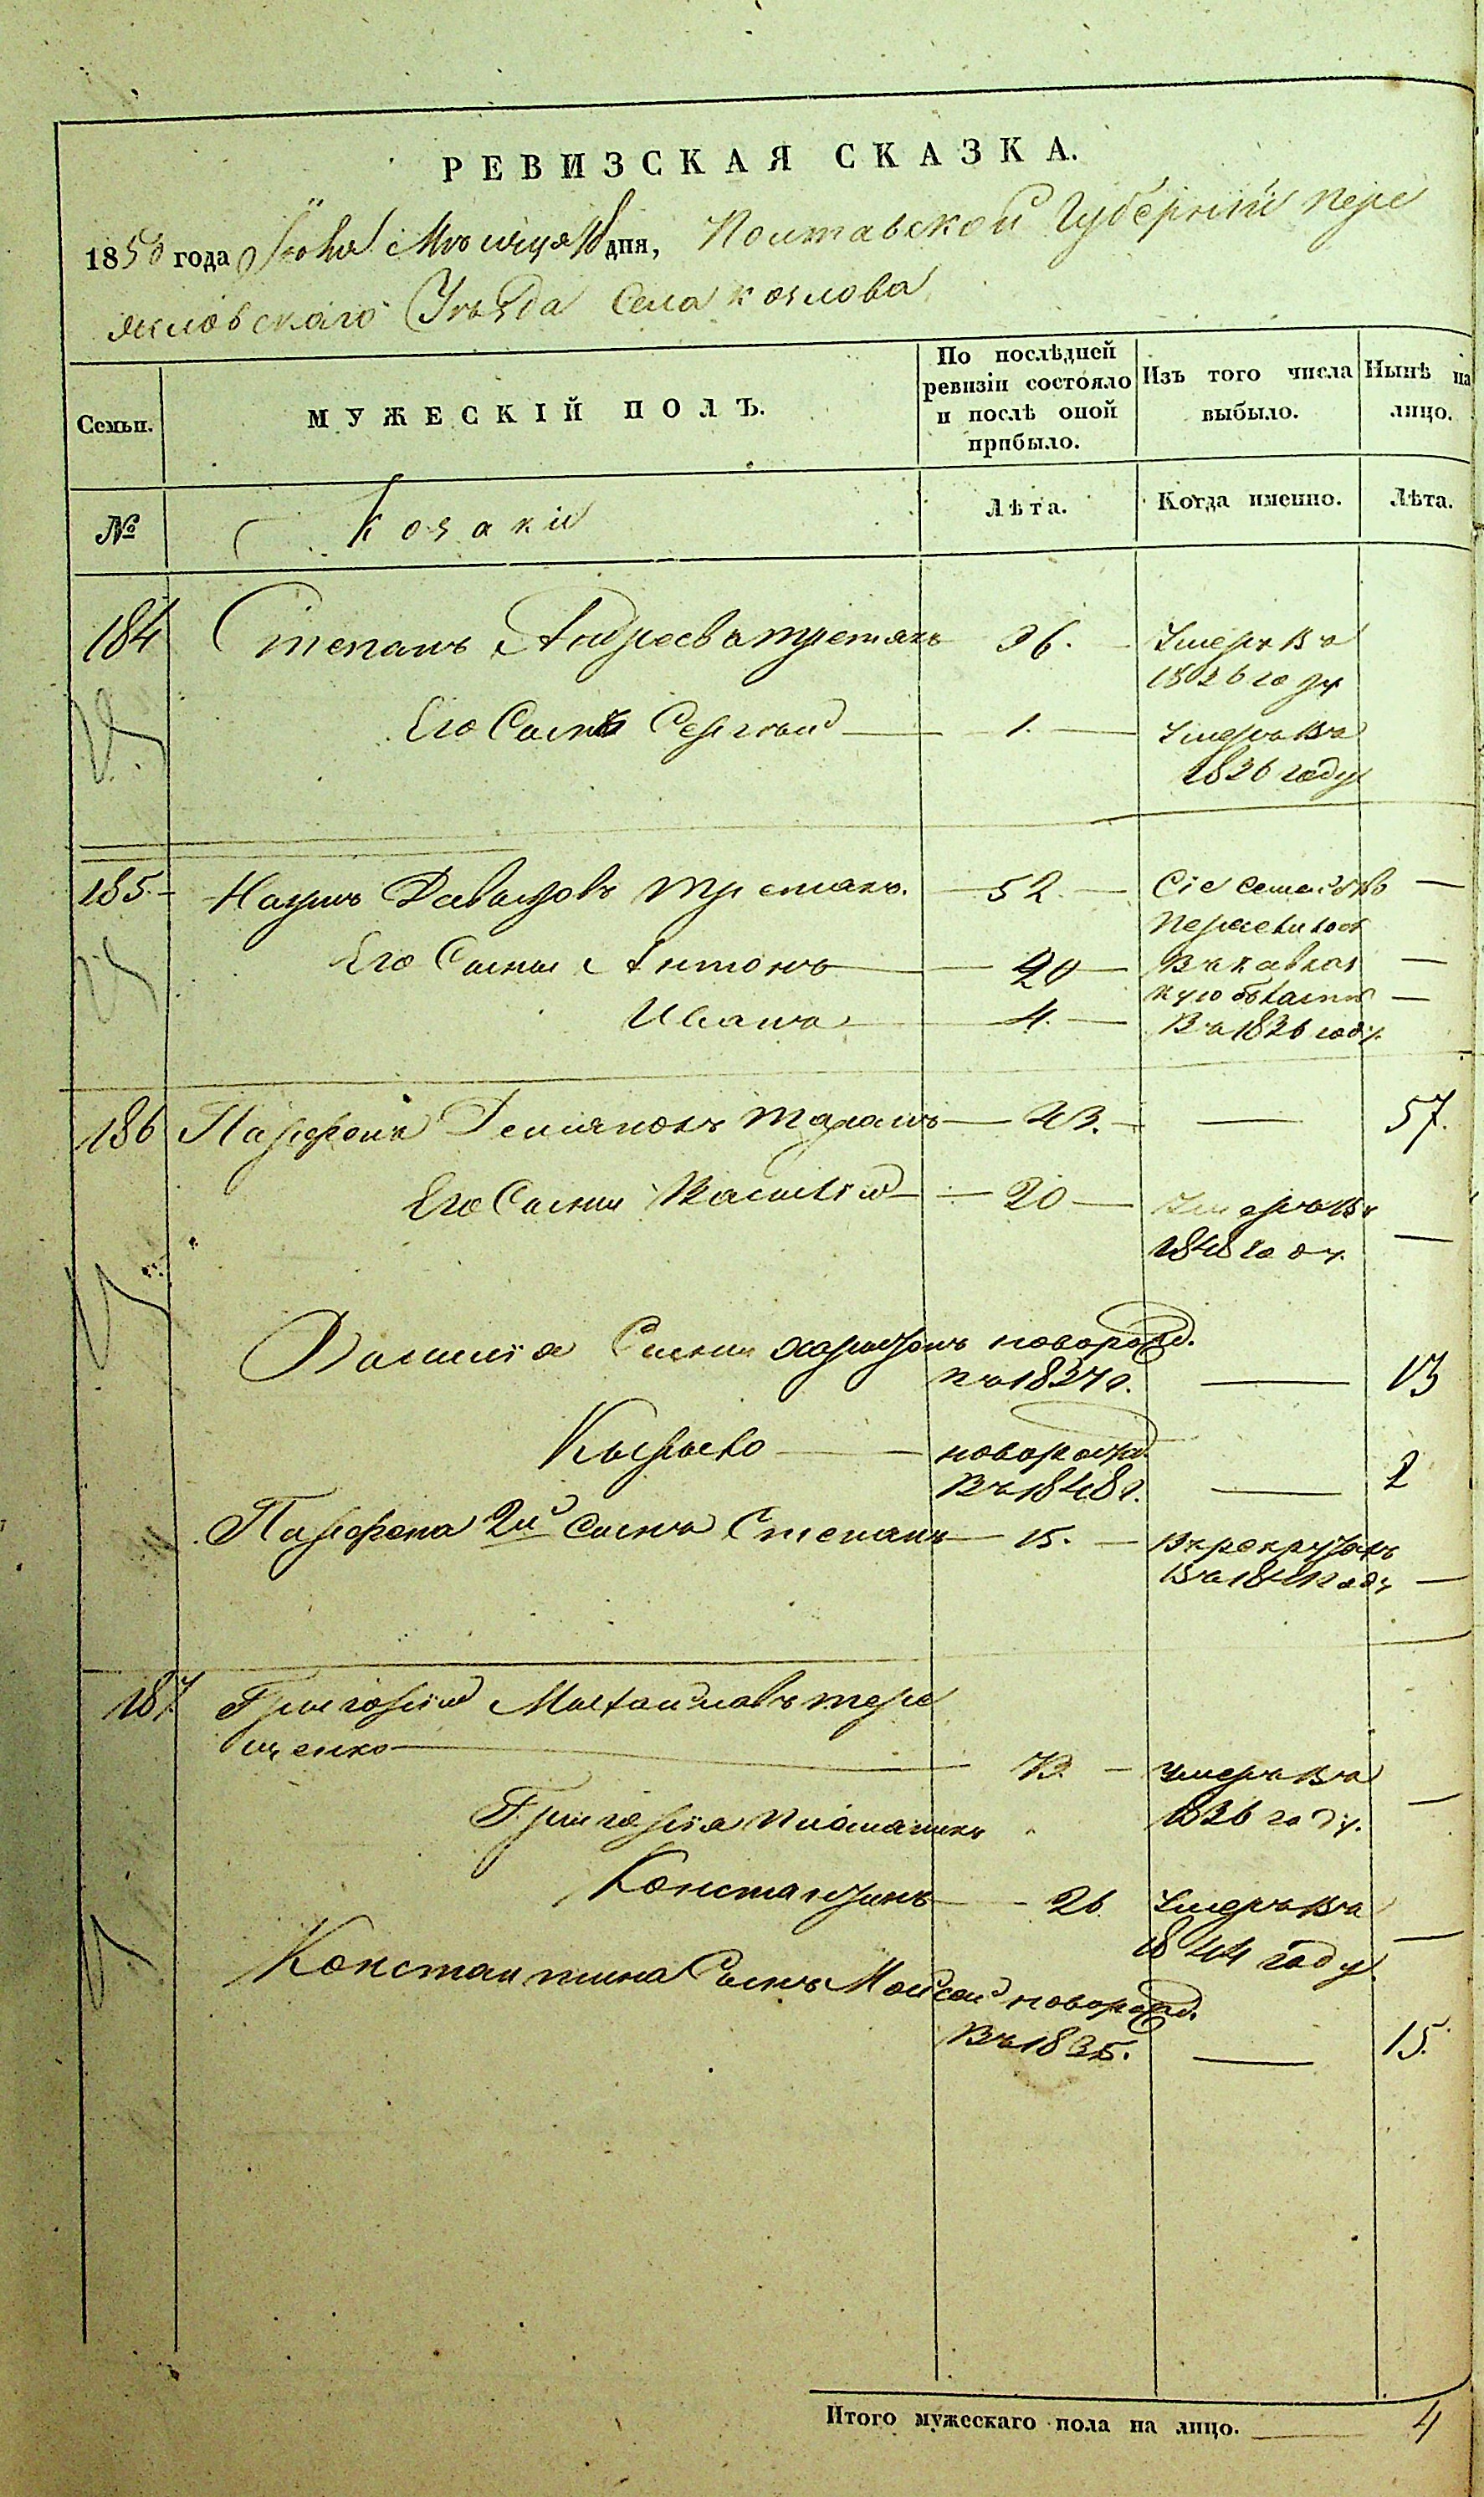 РЕВИЗСКАЯ СКАЗКА.
1850 года Іюля Мѣсяца дня, Полтавской Губерніи Пере
яславскаго Уѣзда Села Козлова
Семьи.
МУЖЕСКІЙ ПОЛЪ.
По послѣдней ревизіи состояло и послѣ оной прибыло.
Изъ того числа выбыло.
Нынѣ на лицо.
№
Козаки
Лѣта.
Когда именно.
Лѣта.
184 Степанъ Андреевъ третякъ 36. Умеръ въ
1836 году
Его Сынъ Сергѣй 1. Умеръ въ
1836 году
185. Наумъ Давыдовъ третякъ. 52 Сіе семейство
переселилось
Его Сыни Антонъ 20 въ кавказ
кую область
Иванъ 4. въ 1836 году.
186 Парфенъ Демяновъ таранъ 43. 57.
Его Сыни Василій 20 Умеръ въ
1848 году.
Василія Сыни Харитонъ новорожд.
въ 1837 г. 13
Кирыло новорожд.
въ 1848 г. 2
Парфена 2й Сынъ Степанъ 15. въ рекрутахъ
въ 1841 году
187. Григорій Михайловъ тере
щенко 73. умеръ въ
1836 году.
Григорія племяникъ
Константинъ 26 Умеръ въ
1844 году.
Константина Сынъ Мойсей новорожд.
въ 1835. 15.
Итого мужескаго пола на лицо. 4